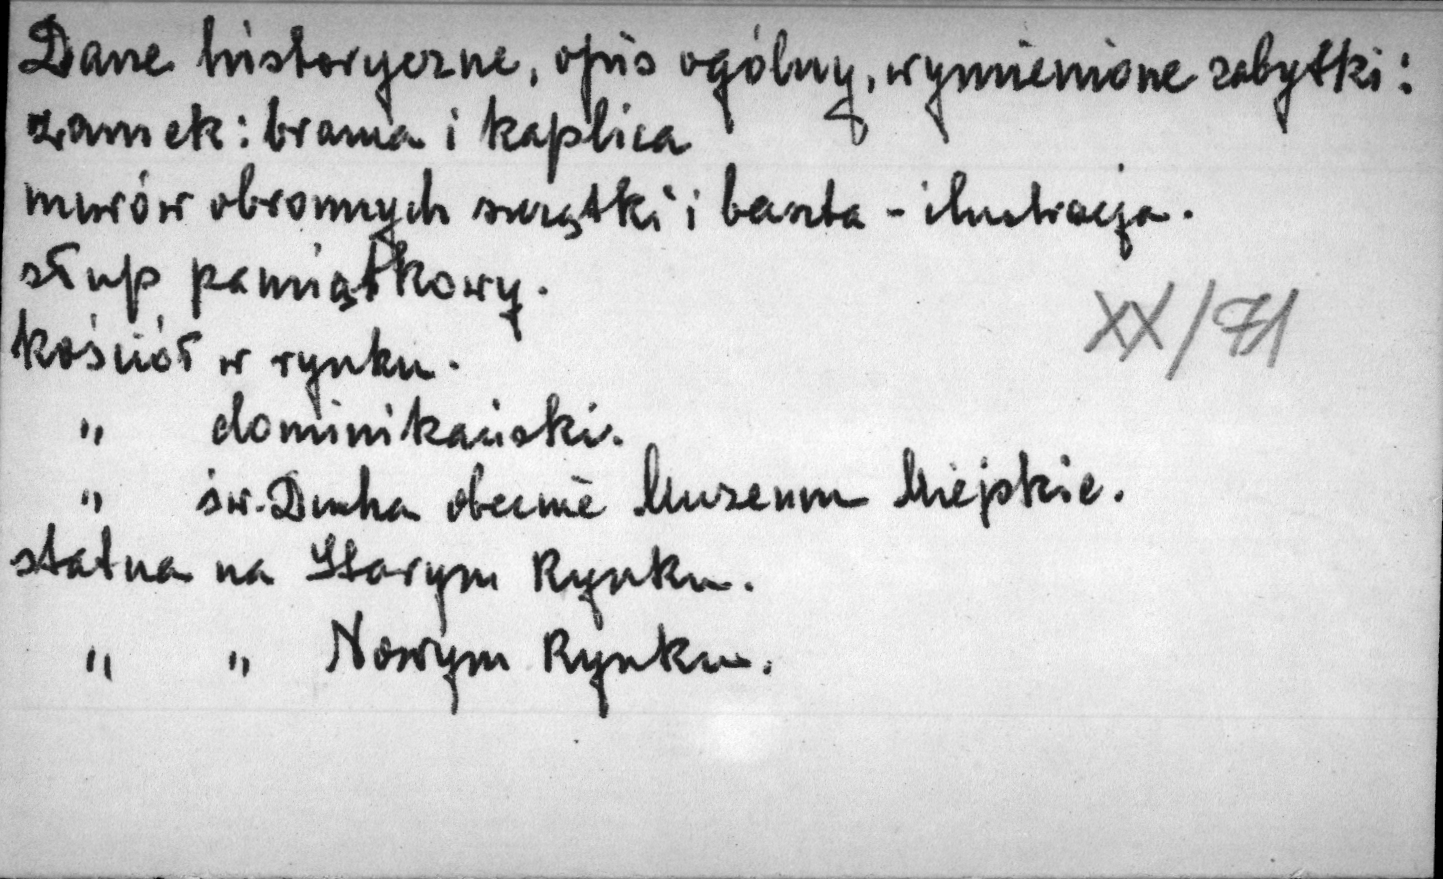 Dane historyczne, opis ogólny, wymienione zabytki:
zamek: brama i kaplica
murów obronnych szczątki i baszta - ilustracja.
słup pamiątkowy.
kościół w rynku.
XX/71
" dominikański.
" św. Ducha obecnie Muzeum Miejskie.
statua na Starym Rynku.
" " Nowym Rynku.